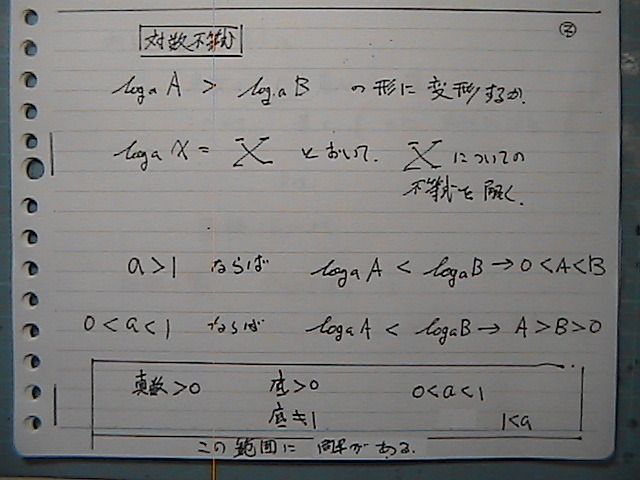 ②
対数不等式
logₐA > logₐB の形に変形するか、
logₐx = X とおいて、Xについての
不等式を解く。
a>1 ならば logₐA < logₐB → 0<A<B
0<a<1 ならば logₐA < logₐB → A>B>0
真数>0 底>0 0<a<1
底≠1 1<a
この範囲に がある。